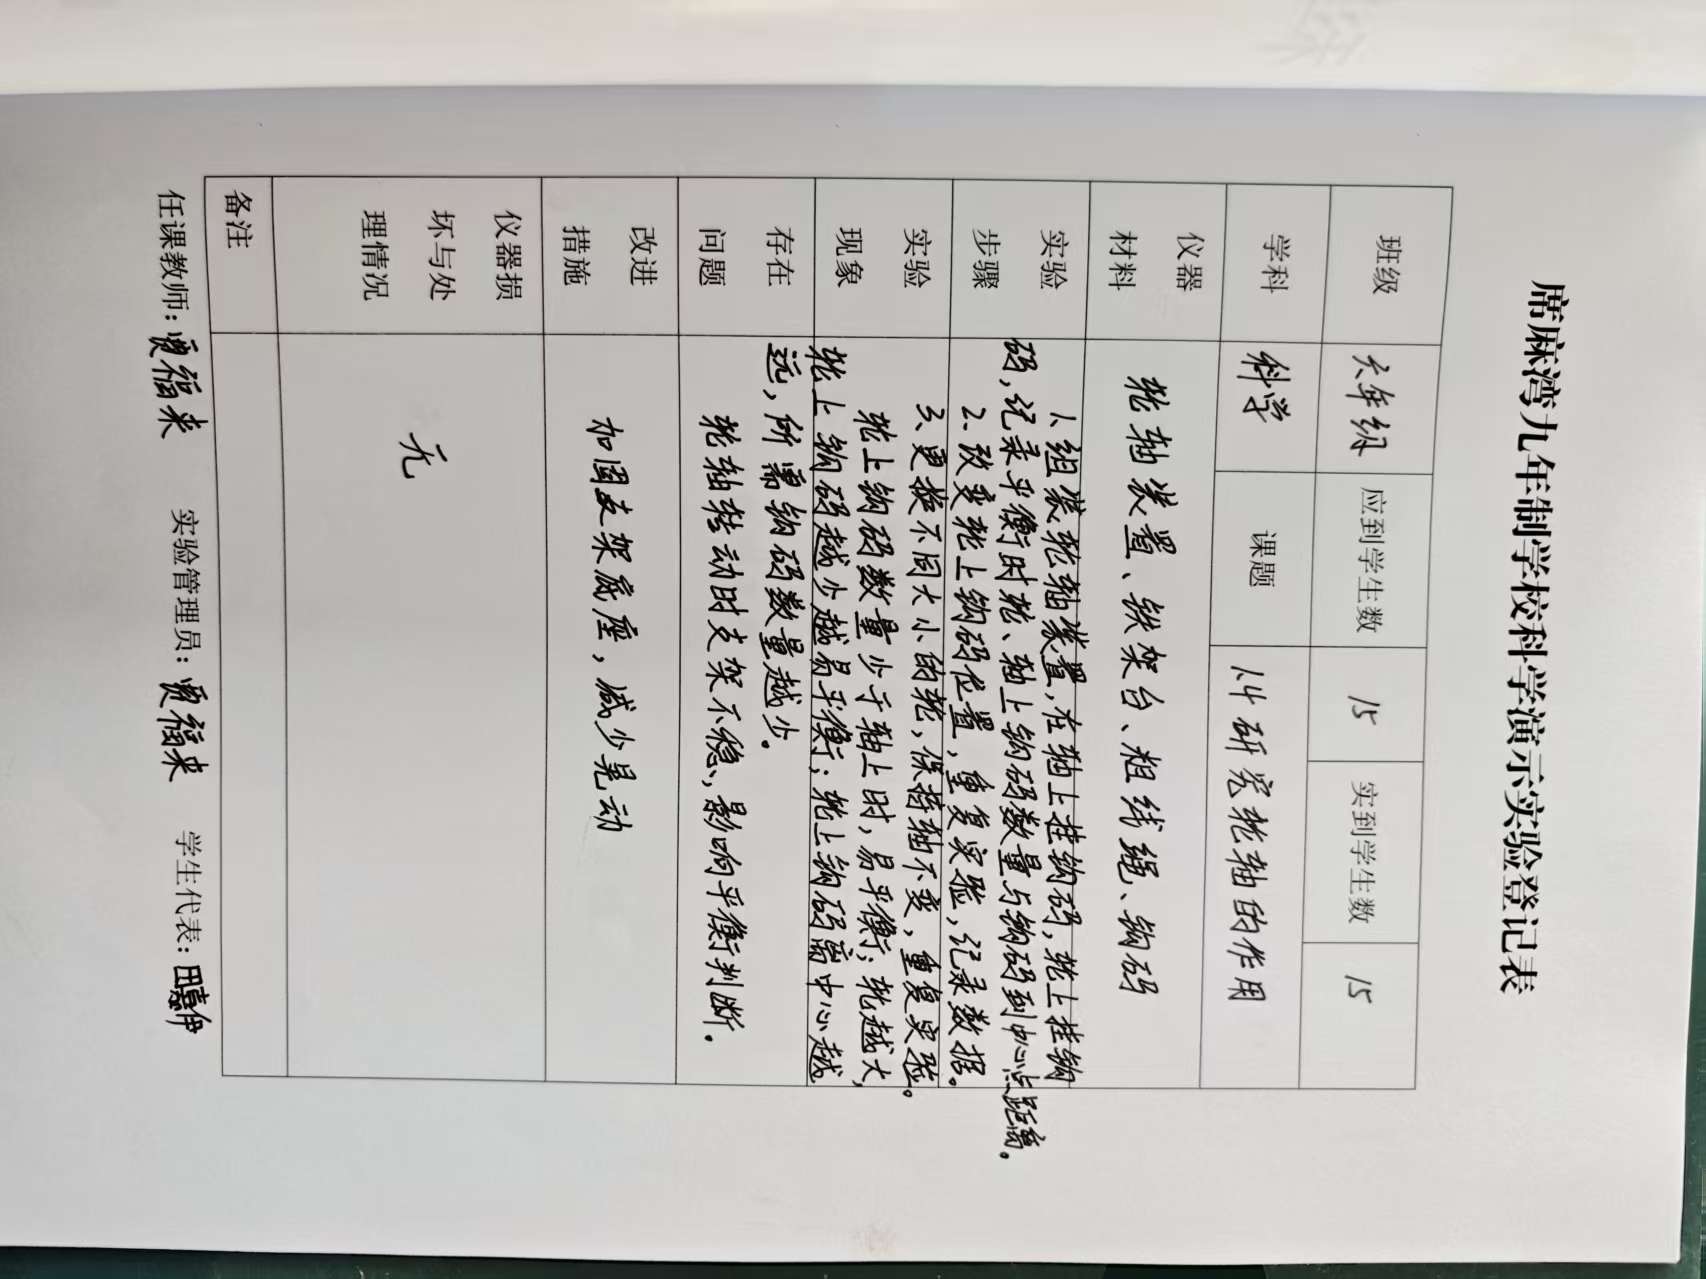 席麻湾九年制学校科学演示实验登记表
班级 六年级 应到学生数 15 实到学生数 15
学科 科学 课题 1.4 研究轮轴的作用
仪器
材料
轮轴装置、铁架台、粗线绳、钩码
实验
步骤
1.组装轮轴装置,在轴上挂钩码,轮上挂钩
码,记录平衡时轮、轴上钩码数量与钩码到中心点距离。
2.改变轮上钩码位置,重复实验,记录数据。
3.更换不同大小的轮,保持轴不变,重复实验。
实验
现象
轮上钩码数量少于轴上时,易平衡;轮越大,
轮上钩码越少越易平衡;轮上钩码离中心越
远,所需钩码数量越少。
存在
问题
轮轴转动时支架不稳,影响平衡判断。
改进
措施
加固支架底座,减少晃动
仪器损
坏与处
理情况
无
备注
任课教师:贾福来 实验管理员:贾福来 学生代表:田嘉伊